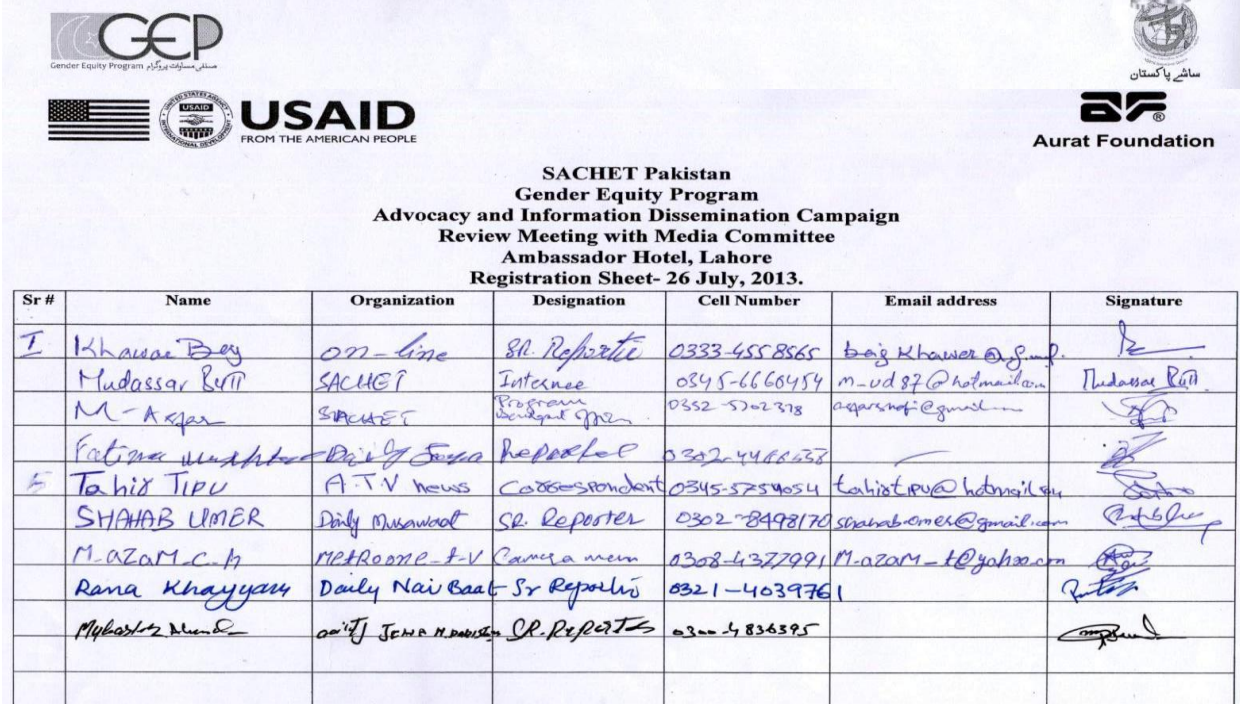 GEP
Gender Equity Program صنفی مساوات پروگرام
ساشے پاکستان
USAID
USAID
FROM THE AMERICAN PEOPLE
Aurat Foundation
SACHET Pakistan
Gender Equity Program
Advocacy and Information Dissemination Campaign
Review Meeting with Media Committee
Ambassador Hotel, Lahore
Registration Sheet- 26 July, 2013.
Sr # Name Organization Designation Cell Number Email address Signature
1 Khawar Beg on-line SR. Reporter 0333-4558565
Mudassar Butt SACHET Internee 0345-6660454 m-ud87@hotmail.com Mudassar Butt
M-Asgar SACHET Program 0352-5702378
Fatima Daily Reporter
5 Tahir TIPU A.T.V news Correspondent 0345-5754054
SHAHAB UMER Daily Musawaat SR. Reporter 0302-8498170
M-AZAM-C-H METROONE-T-V Camera men 0308-4377991 M-azam-t@yahoo.com
Rana Khayyam Daily Nai Baat Sr Reporter 0321-4039761
SR. Reporter 0300-4836395